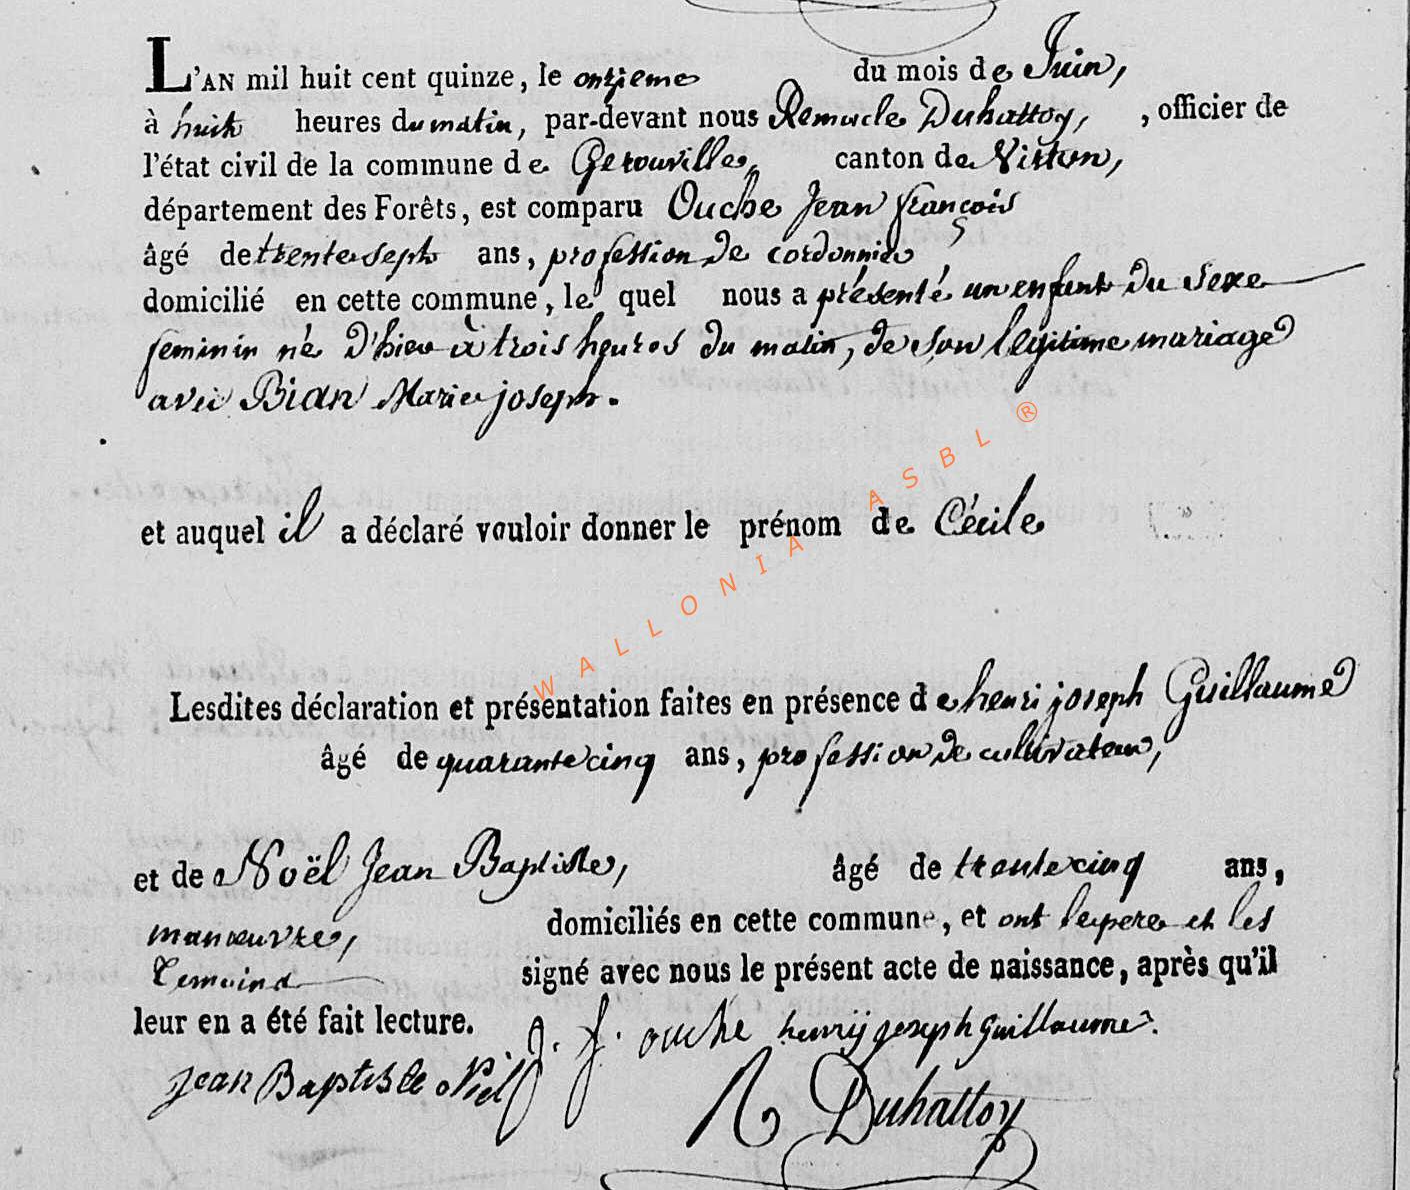 L'AN mil huit cent quinze, le onzieme du mois de Juin,
à huit heures du matin, par-devant nous Remacle Duhattoy, , officier de
l'état civil de la commune de Gerouville, canton de Virton,
département des Forêts, est comparu Ouche Jean françois
âgé de trente sept ans, profession de cordonnier
domicilié en cette commune, le quel nous a présenté un enfant du sexe
feminin né d'hier à trois heures du matin, de son legitime mariage
avec Bian Marie joseph.
et auquel il a déclaré vouloir donner le prénom de Cécile
Lesdites déclaration et présentation faites en présence de henri joseph Guillaume
âgé de quarante cinq ans, profession de cultivateur,
et de Noël Jean Baptiste, âgé de trente cinq ans,
manœuvre, domiciliés en cette commune, et ont le pere et les
temoins signé avec nous le présent acte de naissance, après qu'il
leur en a été fait lecture. J. f. ouche henrij joseph guillaume.
Jean Baptiste Noel
R Duhattoy
WALLONIA ASBL ®